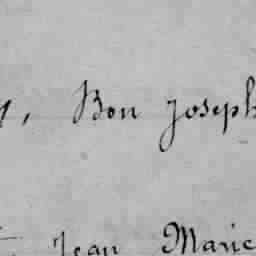 , Bon Joseph
Jean Marie